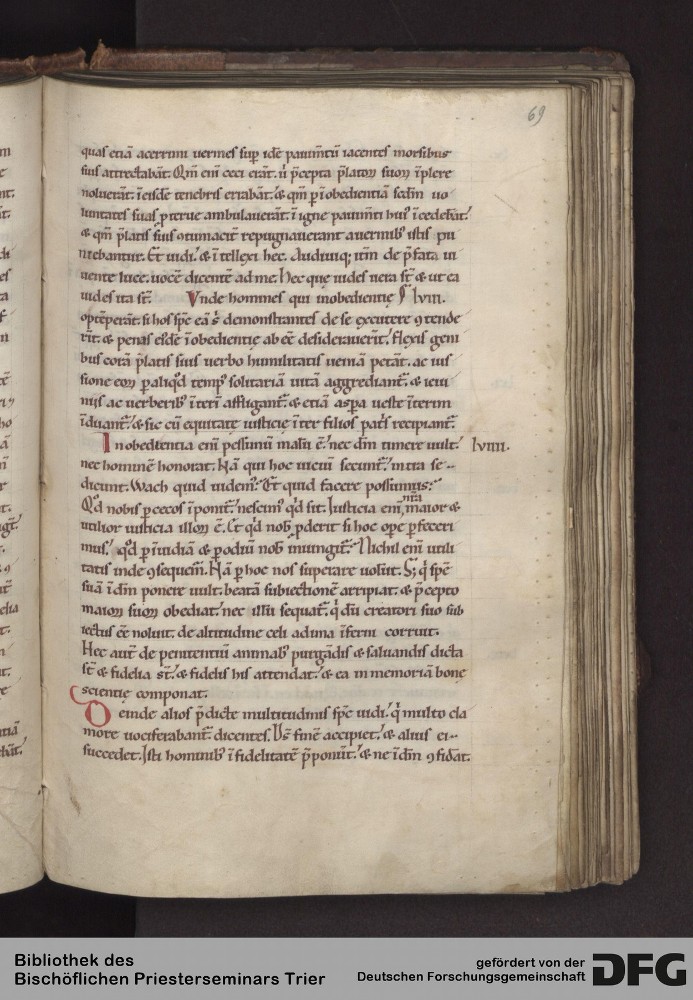 69
quas etiā acerrimi uermes sup idē pauimtū iacentes morsibus
suis attrectabāt. Qm̄ eni ceci erāt. ū p̄cepta p̄latoꝝ suoꝝ īplere
noluerāt. ī eisdē tenebris errabāt. ⁊ qm̄ p ī obedientiā scdm̄ uo
luntates suas pterue ambulauerāt. ī igne pauimti huiꝰ īcedebāt.
⁊ qm̄ p̄latis suis ꝯtumacit̄ repugnauerant a uermibꝰ istis pu
niebantur. Et uidi. ⁊ ītellexi hec. Audiuiq; itm̄ de p̄fata ui
uente luce. uocē dicentē ad me. Hec que uides uera st̄. ⁊ ut ea
uides ita st̄. Vnde homines qui inobedientię lviii.
optēperāt. si hos spc̄ eā ś demonstrantes de se excutere ꝯtende
rīt. ⁊ penas eisdē īobedientię ab eē desiderauerīt. flexis geni
bus corā p̄latis suis uerbo humilitatis ueniā petāt. ac ius
sione eoꝝ p aliqd temp̄ solitariā uitā aggrediant̄. ⁊ ieiu
niis ac uerberibꝰ ī terī affligant̄. ⁊ etiā asp̄a ueste īterim
īduant̄. ⁊ sic cū equitate iusticię īter filios patͥs recipiant̄.
Inobedientia eni pessimū malū ē. nec dm̄ timere uult. lviiii.
nec hominē honorat. Nā qui hoc uiciū secunt̄. intra se
dicunt. Wach quid uidem̄. Et quid facere possumus.
Qd nobis p cecos īponit̄. nescimꝰ qd sit. Iusticia eni nr̄a maior ⁊
utilior iusticia illoꝝ ē. Et qd nob̄ pderit si hoc ope pfeceri
mus. qd p īuidiā ⁊ p odiū nob̄ iniungit̄. Nichil eni utili
tatis inde ꝯsequem̄. Nā p hoc nos superare uolūt. S; q spē
suā ī dm̄ ponere uult. beatā subiectionē arripiat. ⁊ p̄cepto
maioꝝ suoꝝ obediat. nec illū sequat̄. q dū creatori suo sub
iectus eē noluit. de altitudine celi ad ima īferni corruit.
Hec aut̄ de penitentiū animabꝰ purgādis ⁊ saluandis dicta
st̄ ⁊ fidelia st̄. ⁊ fidelis his attendat. ⁊ ea in memoriā bonę
scientię componat.
Deinde alios p̄dicte multitudinis spc̄ uidi. q multo cla
more uociferabant̄ dicentes. Ds̄ finē accipiet. ⁊ alius ei
succedet. Isti hominibꝰ ī fidelitatē p̄ponūt. ⁊ ne ī dm̄ ꝯfidāt.
Bibliothek des
Bischöflichen Priesterseminars Trier
gefördert von der
Deutschen Forschungsgemeinschaft
DFG